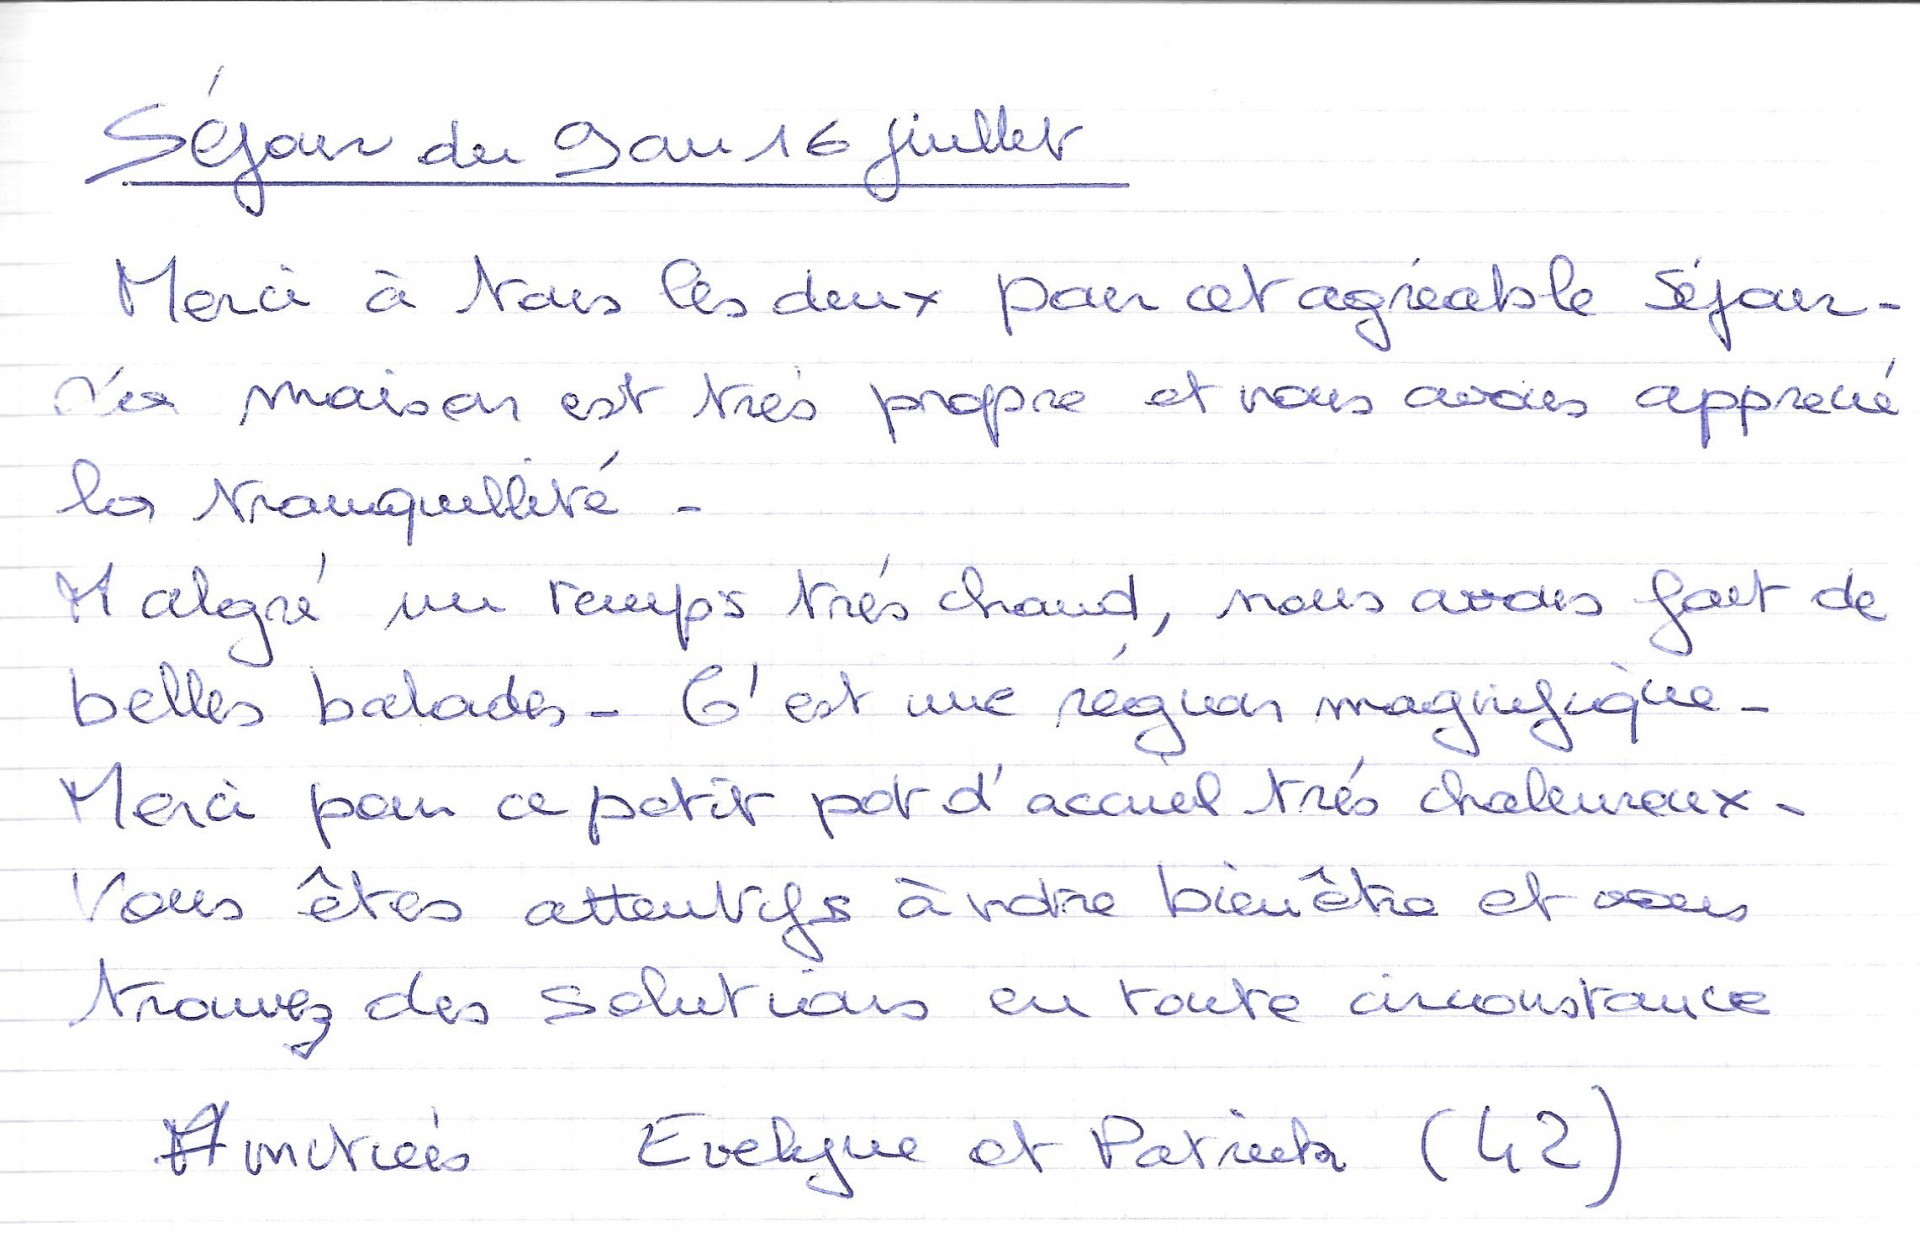 Séjour du 9 au 16 juillet
Merci à tous les deux pour cet agréable séjour -
La maison est très propre et nous avons apprécié
la tranquillité -
Malgré un temps très chaud, nous avons fait de
belles balades - C'est une région magnifique -
Merci pour ce petit pot d'accueil très chaleureux -
Vous êtes attentifs à notre bien être et vous
trouvez des solutions en toute circonstance
Amitiés Evelyne et Patrick (42)